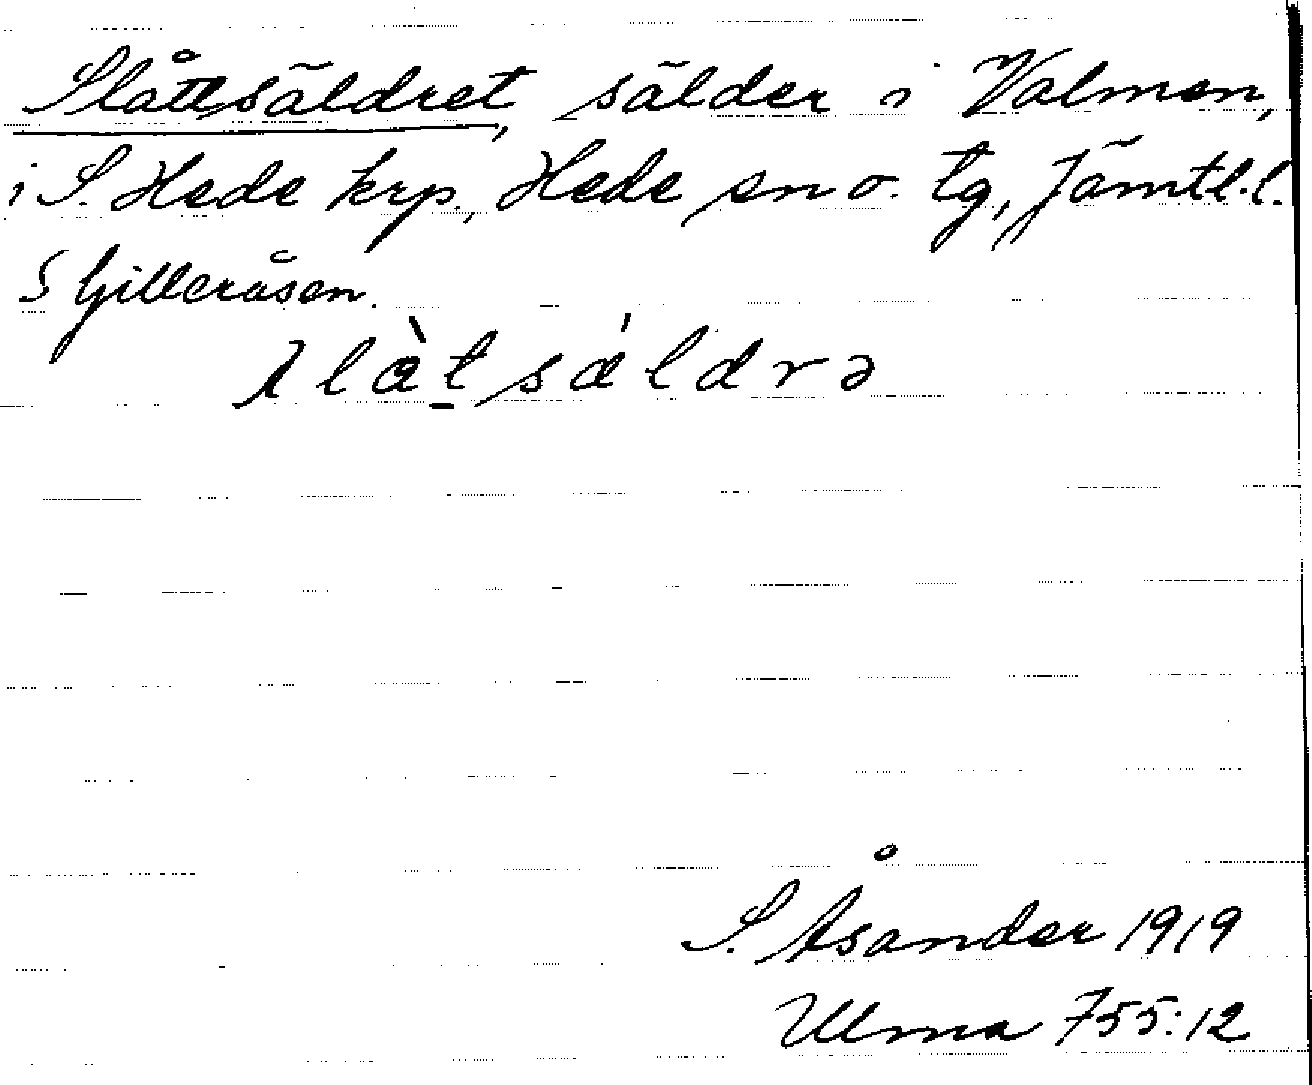 Slåttsäldret, sälder i Valmen,
i S. Hede krp., Hede sn o. tg, Jämtl. l.
S Gilleråsen.
slàt sáldrə
S. Åsander 1919
Ulma 755:12